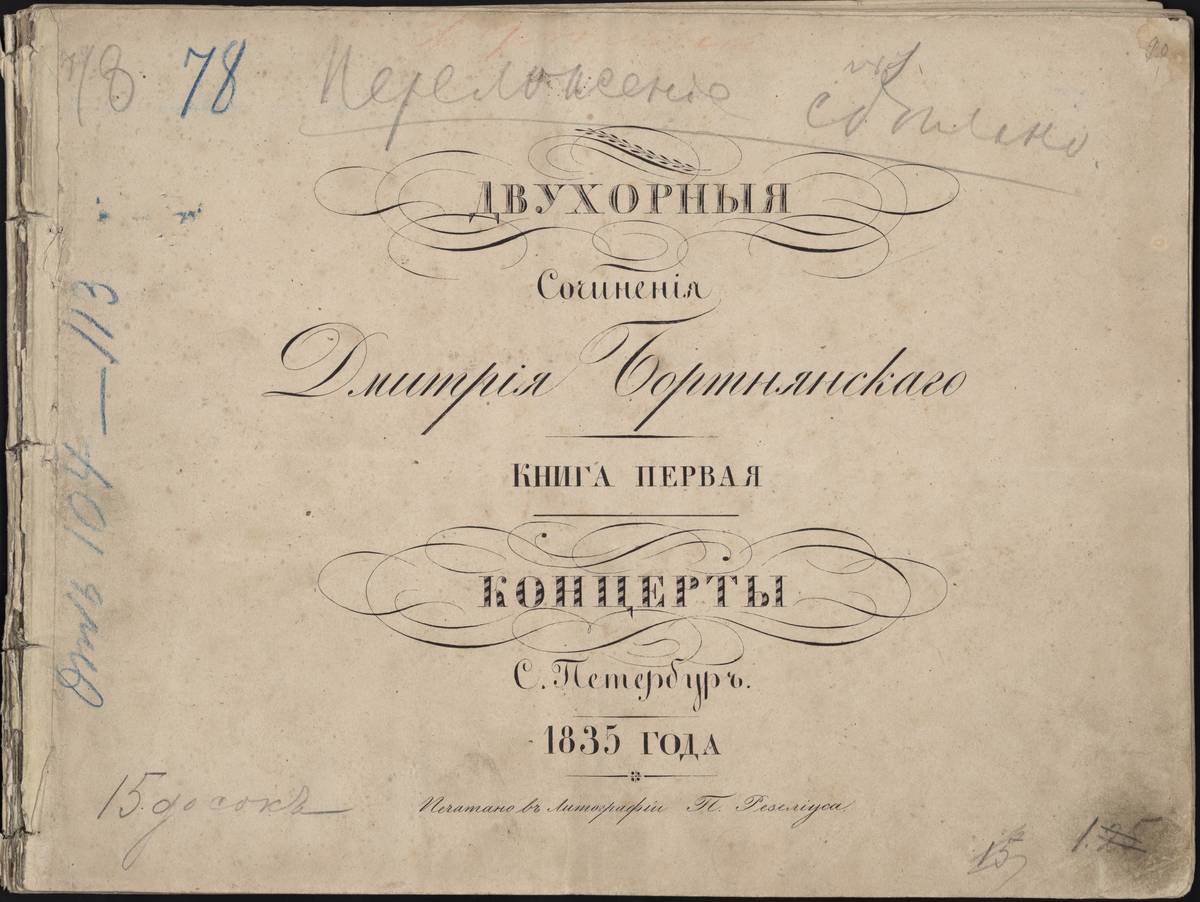 78 78 Переложеніе
сдѣлано.
ДВУХОРНЫЯ
Сочиненія
Дмитрія Бортнянскаго
КНИГА ПЕРВАЯ
КОНЦЕРТЫ
С. Петербургъ.
1835 ГОДА
Печатано въ Литографіи П. Резеліуса
104—113
15 досокъ
15